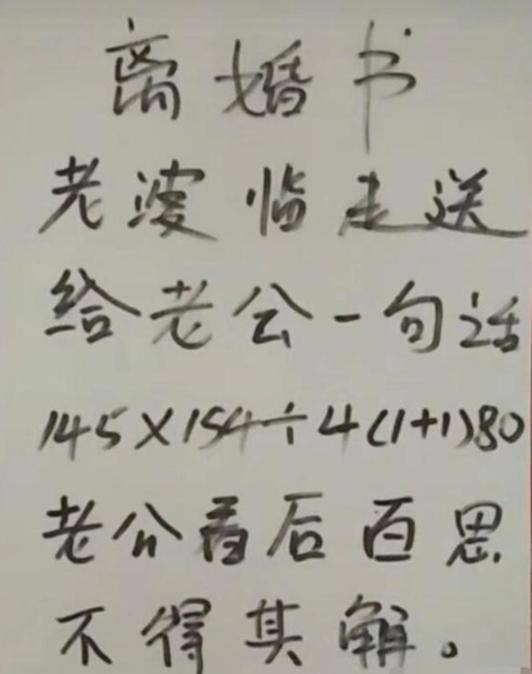 离婚书
老婆临走送
给老公一句话
145×154÷4(1+1)80
老公看后百思
不得其解。